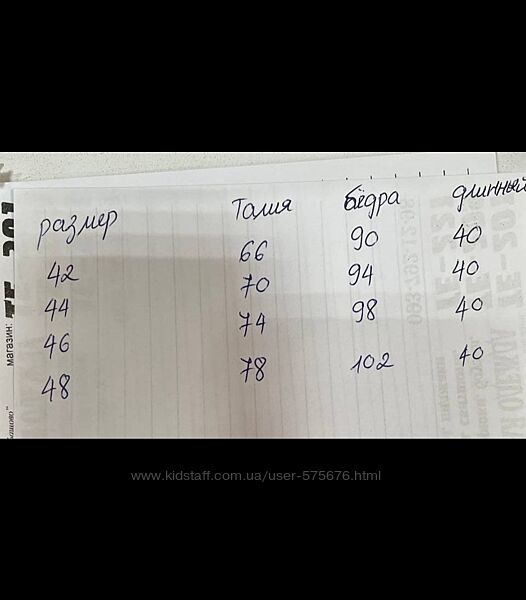 размер Талия бёдра длинный
42 66 90 40
44 70 94 40
46 74 98 40
48 78 102 40
магазин:
www.kidstaff.com.ua/user-575676.html